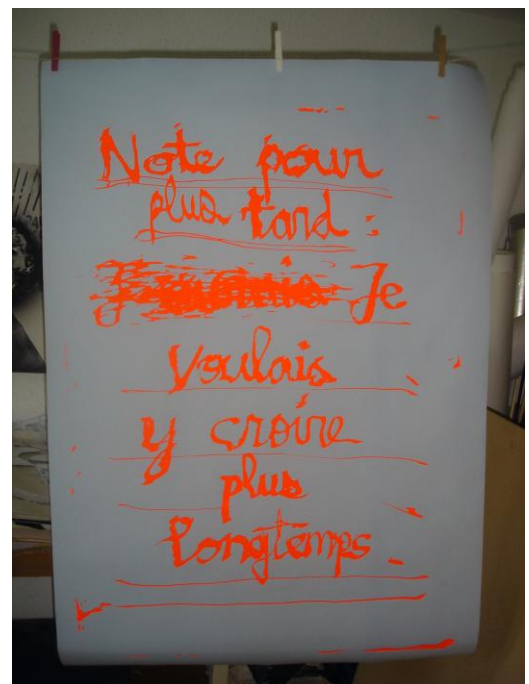 Note pour
plus tard :
Je
voulais
y croire
plus
longtemps